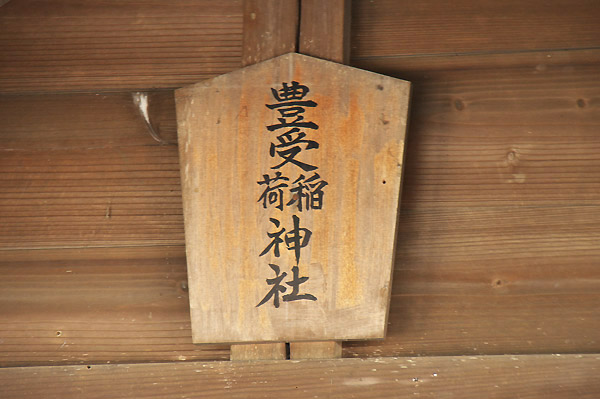 豊受稲荷神社